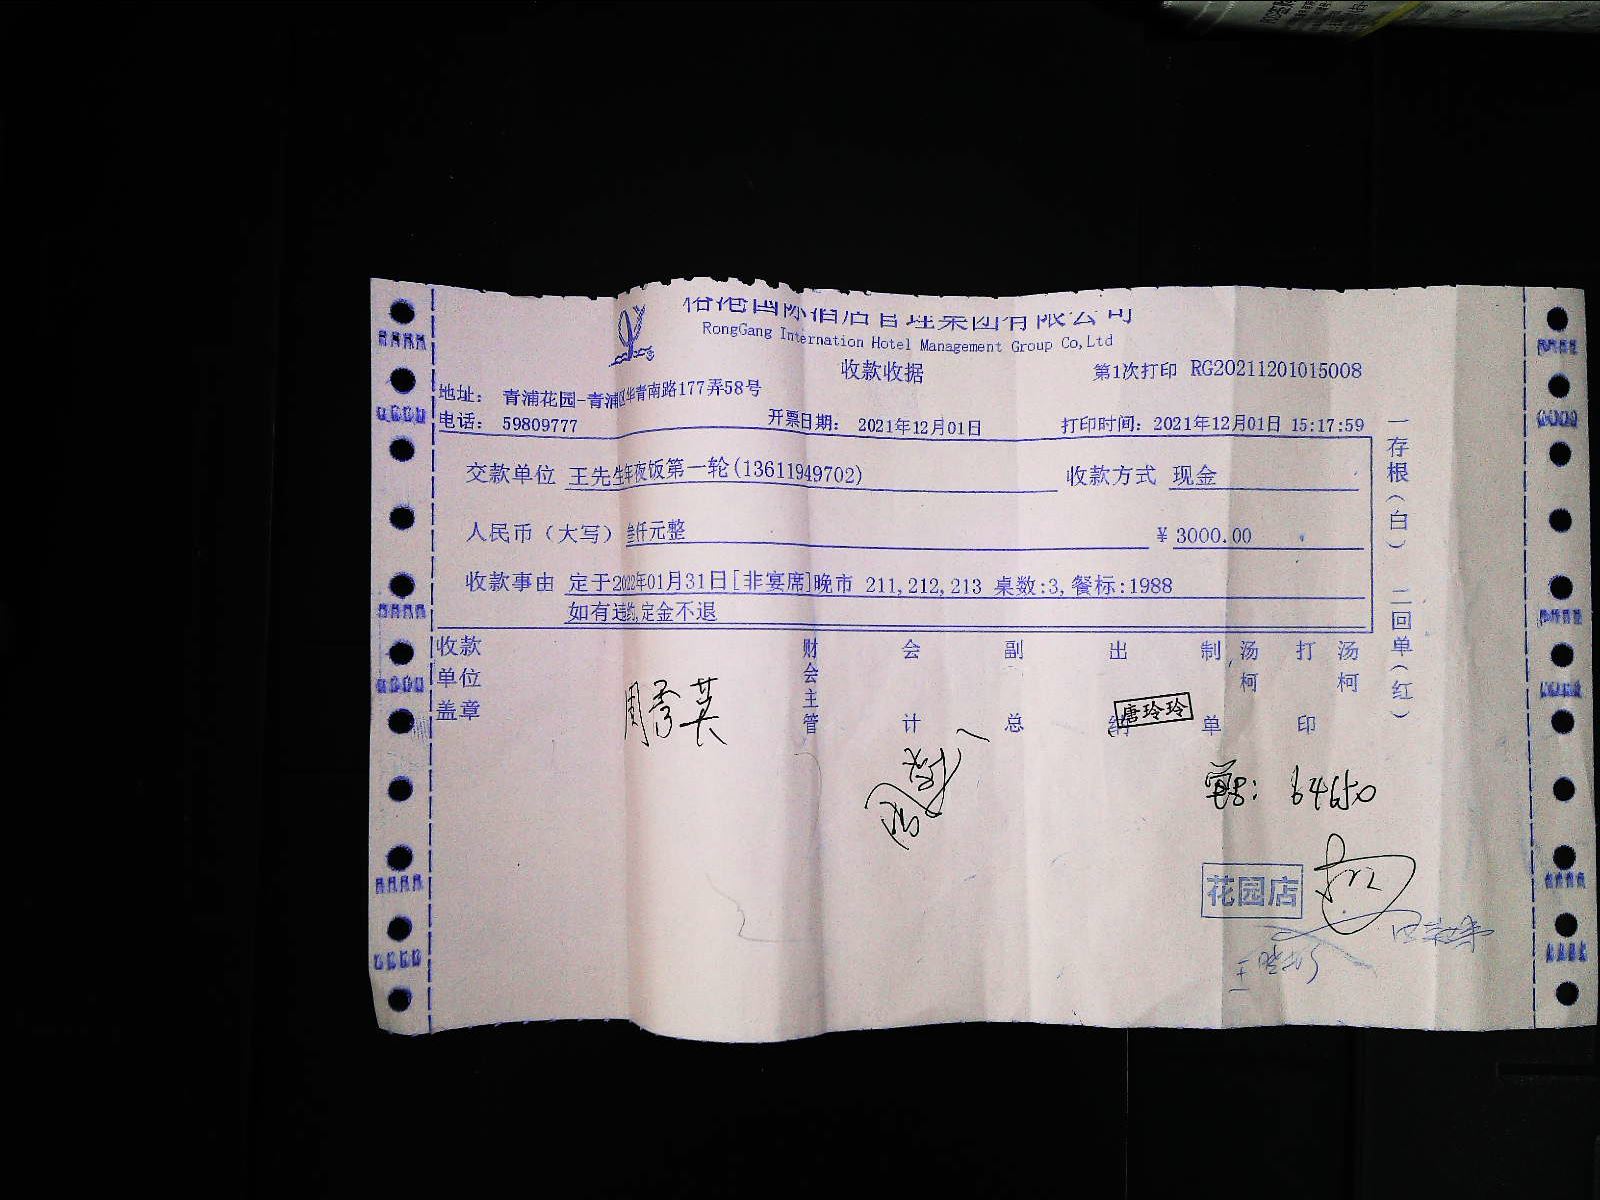 国际酒店管理集团有限公司
RongGang Internation Hotel Management Group Co,Ltd
收款收据
第1次打印 RG20211201015008
地址: 青浦花园-青浦区华青南路177弄58号
电话: 59809777 开票日期: 2021年12月01日 打印时间: 2021年12月01日 15:17:59
交款单位 王先生年夜饭第一轮(13611949702) 收款方式 现金
人民币（大写） 叁仟元整 ¥ 3000.00
收款事由 定于2022年01月31日[非宴席]晚市 211,212,213 桌数:3,餐标:1988
如有违约,定金不退
一存根(白) 二回单(红)
收款单位盖章
财会主管 会计 副总 出纳 制单 汤柯 打印 汤柯
唐玲玲
64650
花园店